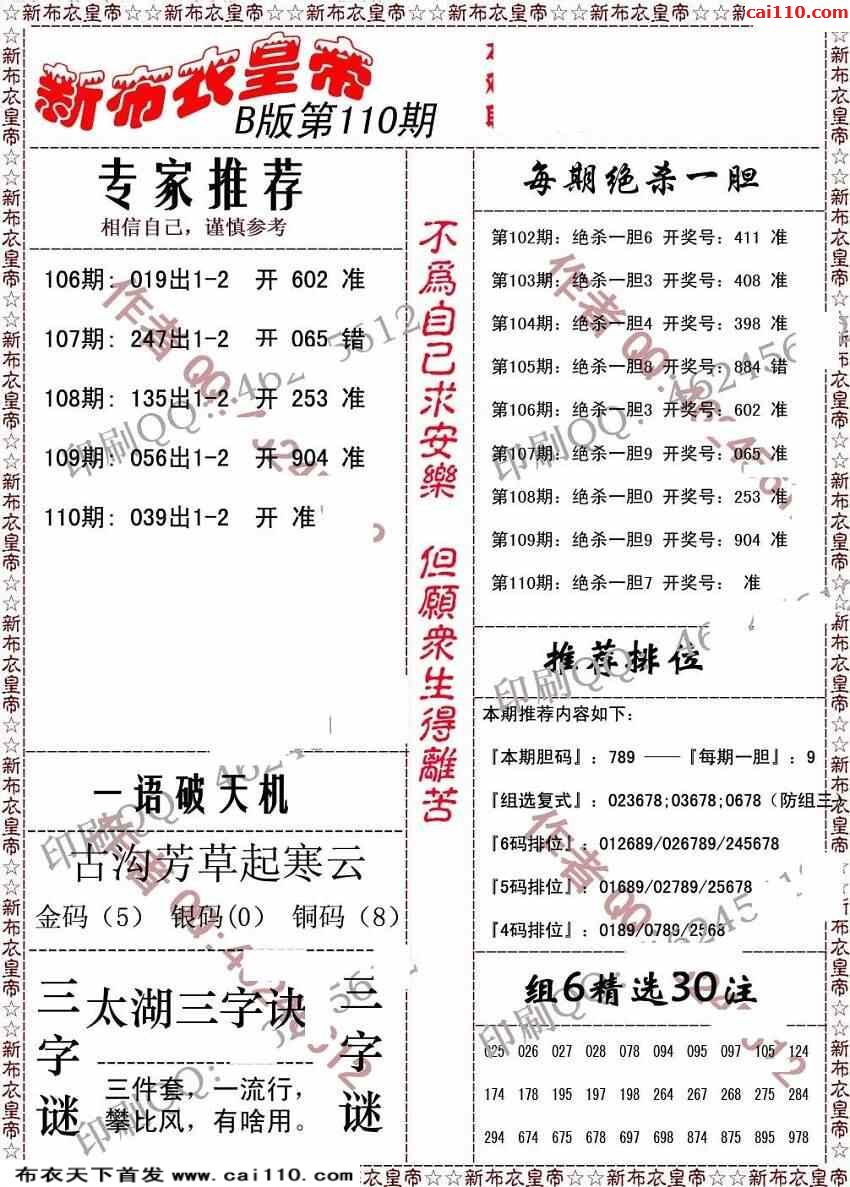 ☆☆新布衣皇帝☆☆新布衣皇帝☆☆新布衣皇帝☆☆新布衣皇帝☆☆新布衣皇帝☆☆新
cai110.com
新布衣皇帝
B版第110期
专家推荐
相信自己，谨慎参考
106期: 019出1-2 开 602 准
107期: 247出1-2 开 065 错
108期: 135出1-2 开 253 准
109期: 056出1-2 开 904 准
110期: 039出1-2 开 准
一语破天机
古沟芳草起寒云
金码（5） 银码(0） 铜码（8）
三字谜
太湖三字诀
三件套，一流行，
攀比风，有啥用。
三字谜
不爲自己求安樂 但願衆生得離苦
每期绝杀一胆
第102期: 绝杀一胆6 开奖号: 411 准
第103期: 绝杀一胆3 开奖号: 408 准
第104期: 绝杀一胆4 开奖号: 398 准
第105期: 绝杀一胆8 开奖号: 884 错
第106期: 绝杀一胆3 开奖号: 602 准
第107期: 绝杀一胆9 开奖号: 065 准
第108期: 绝杀一胆0 开奖号: 253 准
第109期: 绝杀一胆9 开奖号: 904 准
第110期: 绝杀一胆7 开奖号: 准
推荐排位
本期推荐内容如下:
『本期胆码』: 789 ——『每期一胆』: 9
『组选复式』: 023678;03678;0678（防组三）
『6码排位』: 012689/026789/245678
『5码排位』: 01689/02789/25678
『4码排位』: 0189/0789/2568
组6精选30注
025 026 027 028 078 094 095 097 105 124
174 178 195 197 198 264 267 268 275 284
294 674 675 678 697 698 874 875 895 978
布衣天下首发 www.cai110.com
☆新布衣皇帝☆☆新布衣皇帝☆☆新布衣皇帝☆☆新布衣皇帝☆☆